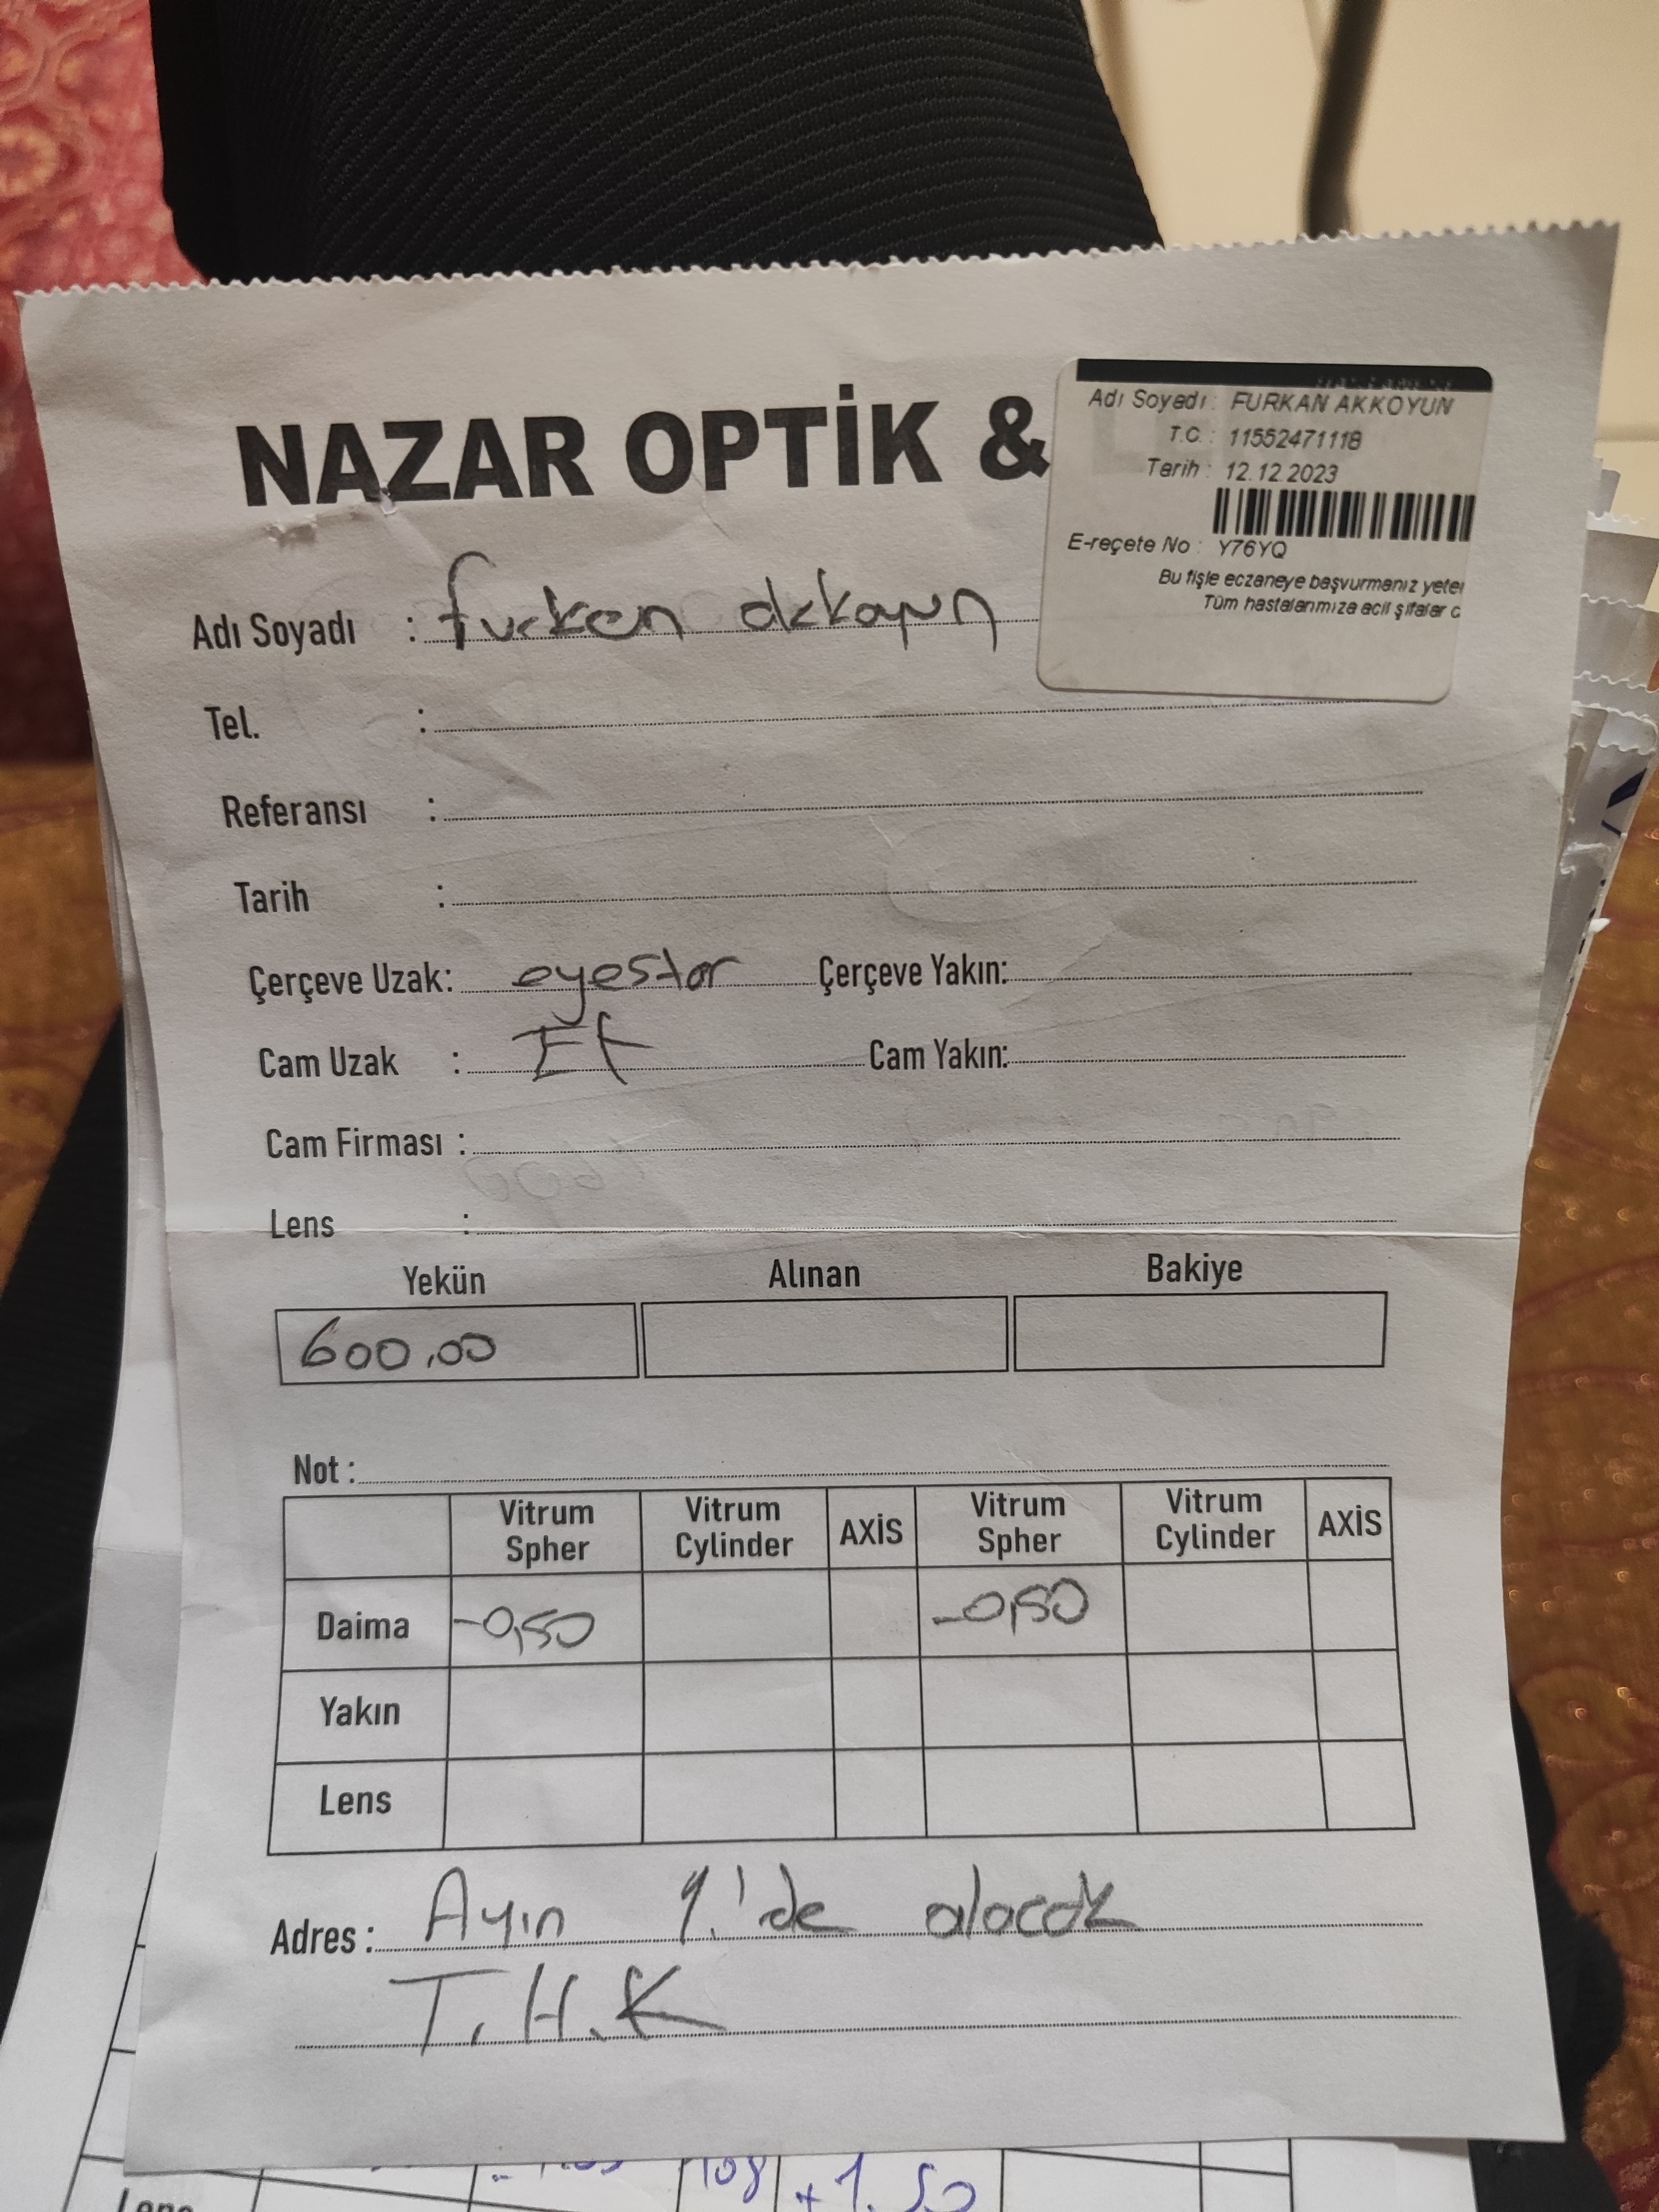 NAZAR OPTİK &
Adı Soyadı : FURKAN AKKOYUN
T.C. : 11552471118
Tarih : 12.12.2023
E-reçete No : Y76YQ
Bu fişle eczaneye başvurmanız yeter
Tüm hastalarımıza acil şifalar d
Adı Soyadı : furkan akkoyun
Tel. :
Referansı :
Tarih :
Çerçeve Uzak: eyestar Çerçeve Yakın:
Cam Uzak : Cam Yakın:
Cam Firması :
Lens :
Yekün Alınan Bakiye
600,00
Not :
Vitrum Spher Vitrum Cylinder AXİS Vitrum Spher Vitrum Cylinder AXİS
Daima -0,50 -0,50
Yakın
Lens
Adres : Ayın 1.'de alacak
T.H.K
108 +1.50
Lens